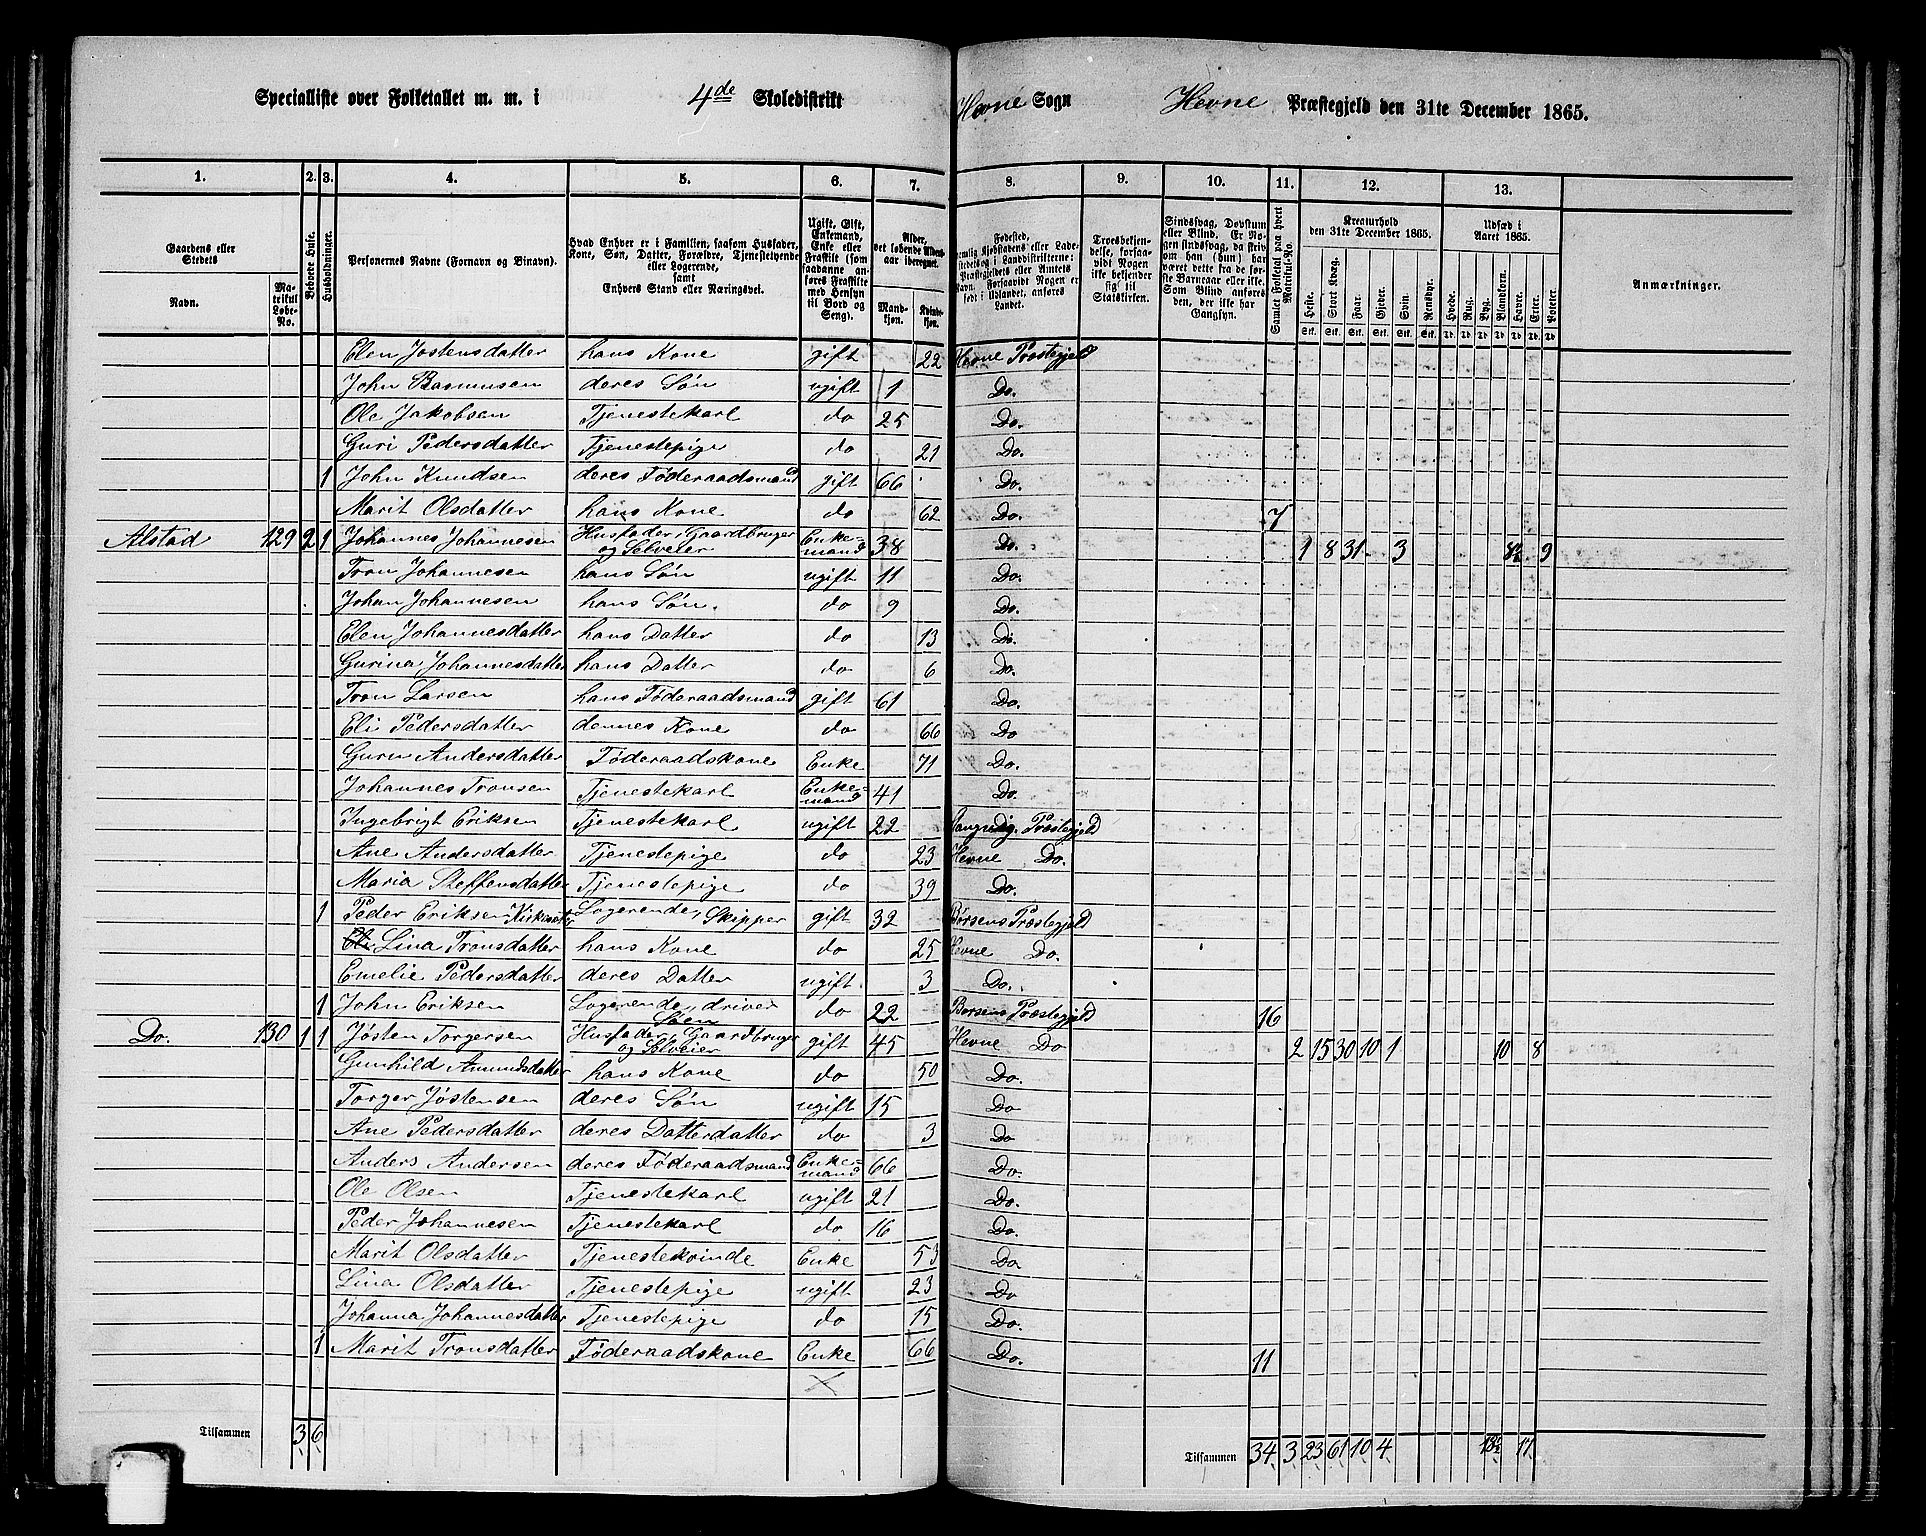 Specialliste over Folketallet m. m. i 4de Skoledistrikt Hevne Sogn Hevne Præstegjeld den 31te December 1865.
1. 2. 3. 4. 5. 6. 7. 8. 9. 10. 11. 12. 13.
Gaardens eller Stedets
Navn.
Matrikul Løbe-No.
Beboede Huse.
Husholdninger.
Personernes Navne (Fornavn og Binavn).
Hvad Enhver er i Familien, saasom Husfader, Kone, Søn, Datter, Forældre, Tjenestetyende eller Logerende, samt Enhvers Stand eller Næringsvei.
Ugift, Gift, Enkemand, Enke eller Fraskilt (som saadanne anføres Fraskilte med Hensyn til Bord og Seng).
Alder, det løbende Aldersaar iberegnet.
Mandkjøn. Kvindekjøn.
Troesbekjendelse, forsaavidt Nogen ikke bekjender sig til Statskirken.
Sindssvag, Døvstum eller Blind. Er Nogen sindssvag, da skrives om han (hun) har været dette fra de første Barneaar eller ikke. Som Blind anføres den, der ikke har Gangsyn.
Samlet Folketal paa hvert Matrikul-No.
Kreaturhold den 31te December 1865.
Heste. Stort Kvæg. Faar. Gjeder. Svin. Rensdyr.
Udsæd i Aaret 1865.
Hvede. Rug. Byg. Blandkorn. Havre. Erter. Poteter.
Anmærkninger.
Elen Jostensdatter hans Kone gift 22 Hevne Præstegjeld
John Rasmussen deres Søn ugift 1 Do.
Ole Jakobsen Tjenestekarl do 25 Do.
Guri Pedersdatter Tjenestepige do 21 Do.
1 John Knudsen deres Føderaadsmand gift 66 Do.
Marit Olsdatter hans Kone do 62 Do. 7
Alstad 129 2 1 Johannes Johannesen Husfader, Gaardbruger og Selveier Enkemand 38 Do. 1 8 31 3 8½ 9
Tron Johannesen hans Søn ugift 11 Do.
Johan Johannesen hans Søn. do 9 Do.
Elen Johannesdatter hans Datter do 13 Do.
Gurina Johannesdatter hans Datter do 6 Do.
Tron Larsen hans Føderaadsmand gift 61 Do.
Eli Pedersdatter dennes Kone do 66 Do
Guru Andersdatter Føderaadskone Enke 71 Do.
Johannes Tronsen Tjenestekarl Enkemand 41 Do.
Ingebrigt Eriksen Tjenestekarl ugift 22 Præstegjeld
Ane Andersdatter Tjenestepige do 23 Hevne Do.
Maria Steffensdatter Tjenestepige do 39 Do.
1 Peder Eriksen Logerende, Skipper gift 32 Børsens Præstegjeld
Eli Lina Tronsdatter hans Kone do 25 Hevne Do.
Emelie Pedersdatter deres Datter ugift 3 Do.
1 John Eriksen Logerende, driver Søen do 22 Børsens Præstegjeld 16
Do. 130 1 1 Jøsten Torgersen Husfader, Gaardbruger og Selveier gift 45 Hevne Do 2 15 30 10 1 10 8
Gunhild Amundsdatter hans Kone do 50 Do.
Torger Jøstensen deres Søn ugift 15 Do
Ane Pedersdatter deres Datterdatter do 3 Do
Anders Andersen deres Føderaadsmand Enkemand 66 Do
Ole Olsen Tjenestekarl ugift 21 Do.
Peder Johannesen Tjenestekarl do 16 Do.
Marit Olsdatter Tjenestekvinde Enke 53 Do
Lina Olsdatter Tjenestepige ugift 23 Do
Johanna Johannesdatter Tjenestepige do 15 Do.
1 Marit Tronsdatter Føderaadskone Enke 66 Do. 11
Tilsammen 3 6 Tilsammen 34 3 23 61 10 4 18½ 17